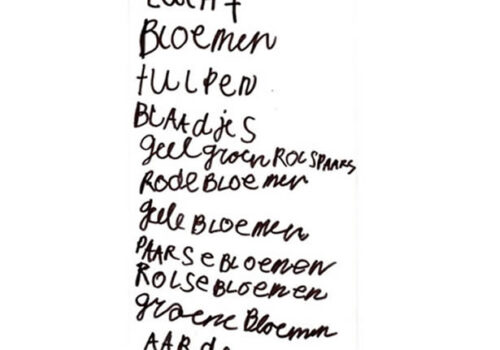 BLoemen
tuLpen
BLAAdjes
geel groen ROLSPAARS
RodeBLoemen
geeleBLoemen
PAARSeBLoemen
ROLSeBLoemen
groene Bloemen
AARde